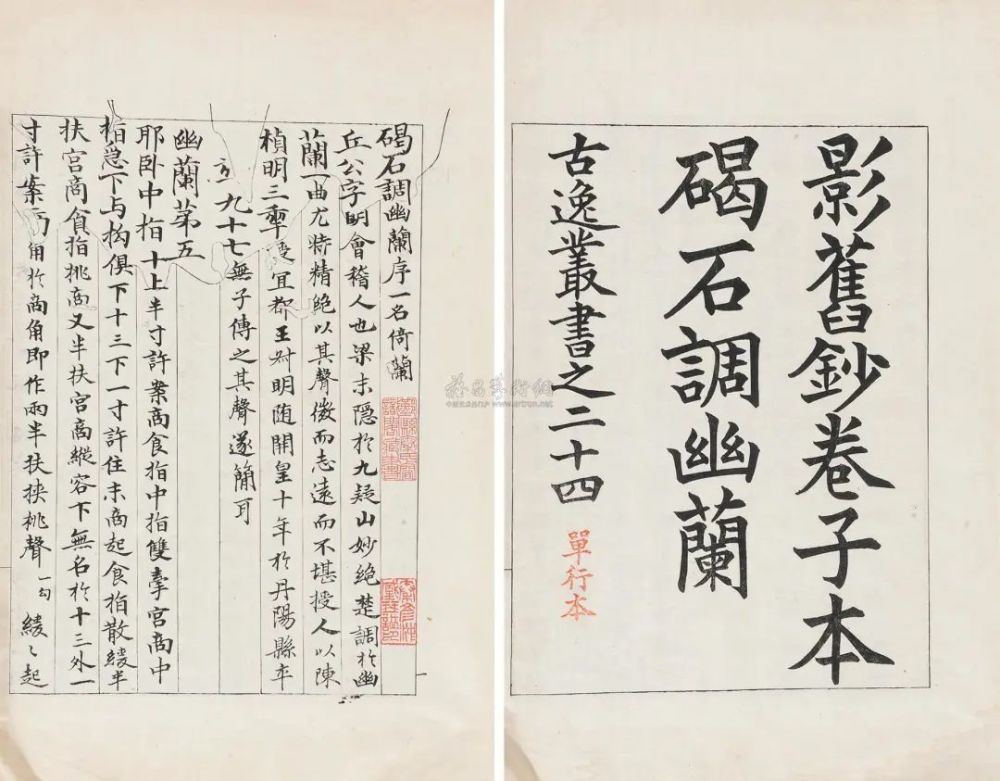 影舊鈔卷子本
碣石調幽蘭
古逸叢書之二十四 單行本
碣石調幽蘭序一名倚蘭
丘公字明會稽人也梁末隱於九疑山妙絕楚調於幽
蘭一曲尤特精絕以其聲微而志遠而不堪授人以陳
禎明三年授宜都王叔明隨開皇十年於丹陽縣卒
九十七無子傳之其聲遂簡耳
幽蘭第五
耶卧中指十上半寸許案商食指中指雙牽宮商中
指急下与拘俱下十三下一寸許住末商起食指散緩半
扶宮商食指挑商又半扶宮商縱容下無名於十三外一
寸許案商角於商角即作兩半扶挾挑聲一句 緩〻起